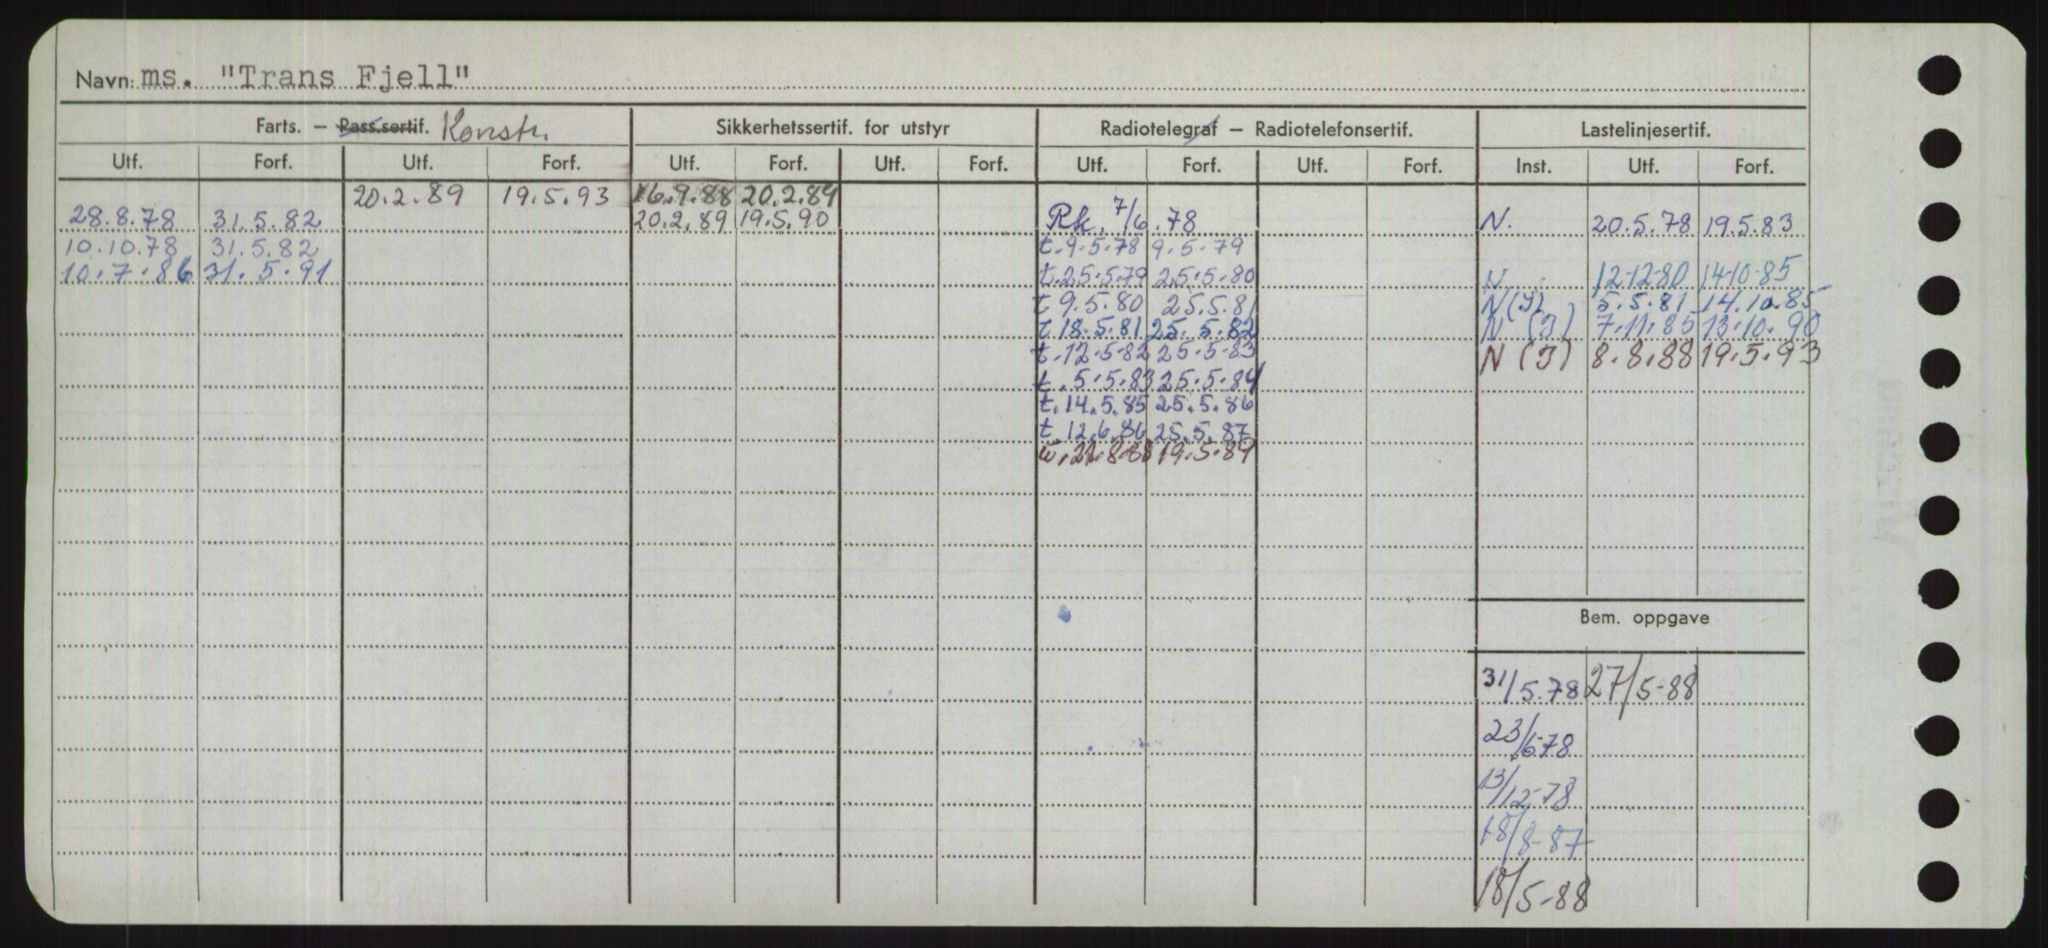 Navn: ms. "Trans Fjell"
Farts. – Pass.sertif. Konstr. Sikkerhetssertif. for utstyr Radiotelegraf – Radiotelefonsertif. Lastelinjesertif.
Utf. Forf. Utf. Forf. Utf. Forf. Utf. Forf. Utf. Forf. Utf. Forf. Inst. Utf. Forf.
20.2.89 19.5.93 16.9.88 20.2.89
28.8.78 31.5.82 20.2.89 19.5.90 Rk. 7/6.78 N. 20.5.78 19.5.83
10.10.78 31.5.82 t.9.5.78 9.5.79
10.7.86 31.5.91 t.25.5.79 25.5.80 N. 12-12-80 14-10-85
t 9.5.80 25.5.81 N(J) 5.5.81 14.10.85
t.18.5.81 25.5.82 N (J) 7.11.85 13.10.90
t.12.5.82 25.5.83 N (J) 8.8.88 19.5.93
t.5.5.83 25.5.84
t.14.5.85 25.5.86
t 12.6.86 25.5.87
19.5.89
Bem. oppgave
31/5.78 27/5-88
23/6.78
13/12-78
18/8-87
18/5-88